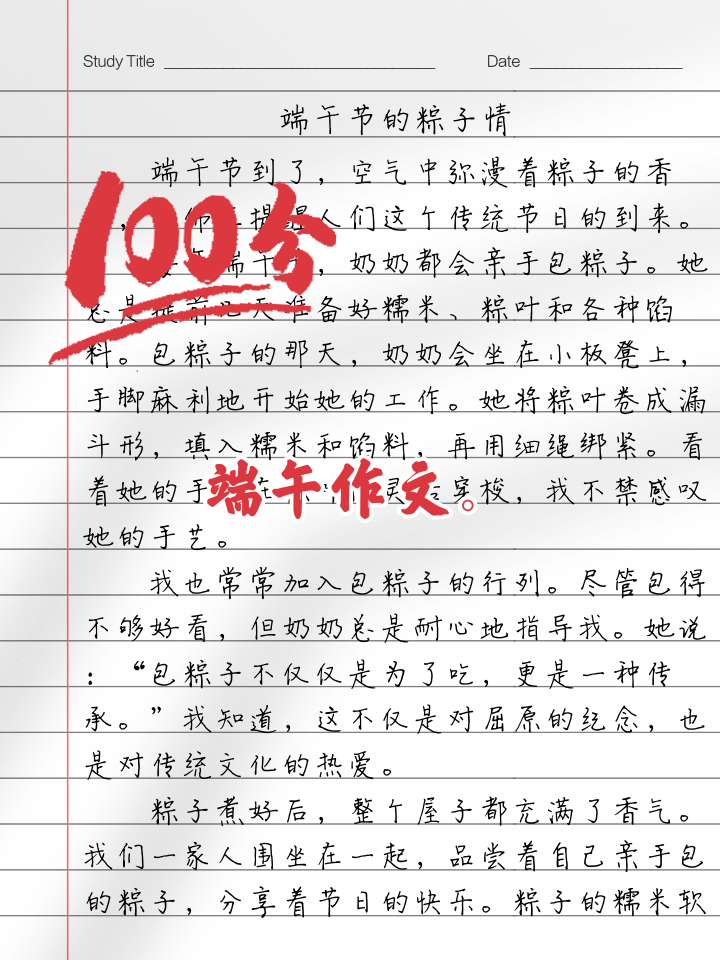 Study Title
Date
端午节的粽子情
端午节到了，空气中弥漫着粽子的香
，提醒人们这个传统节日的到来。
100分
端午，奶奶都会亲手包粽子。她
总是提前几天准备好糯米、粽叶和各种馅
料。包粽子的那天，奶奶会坐在小板凳上，
手脚麻利地开始她的工作。她将粽叶卷成漏
斗形，填入糯米和馅料，再用细绳绑紧。看
着她的手在灵穿梭，我不禁感叹
端午作文。
她的手艺。
我也常常加入包粽子的行列。尽管包得
不够好看，但奶奶总是耐心地指导我。她说
：“包粽子不仅仅是为了吃，更是一种传
承。”我知道，这不仅是对屈原的纪念，也
是对传统文化的热爱。
粽子煮好后，整个屋子都充满了香气。
我们一家人围坐在一起，品尝着自己亲手包
的粽子，分享着节日的快乐。粽子的糯米软